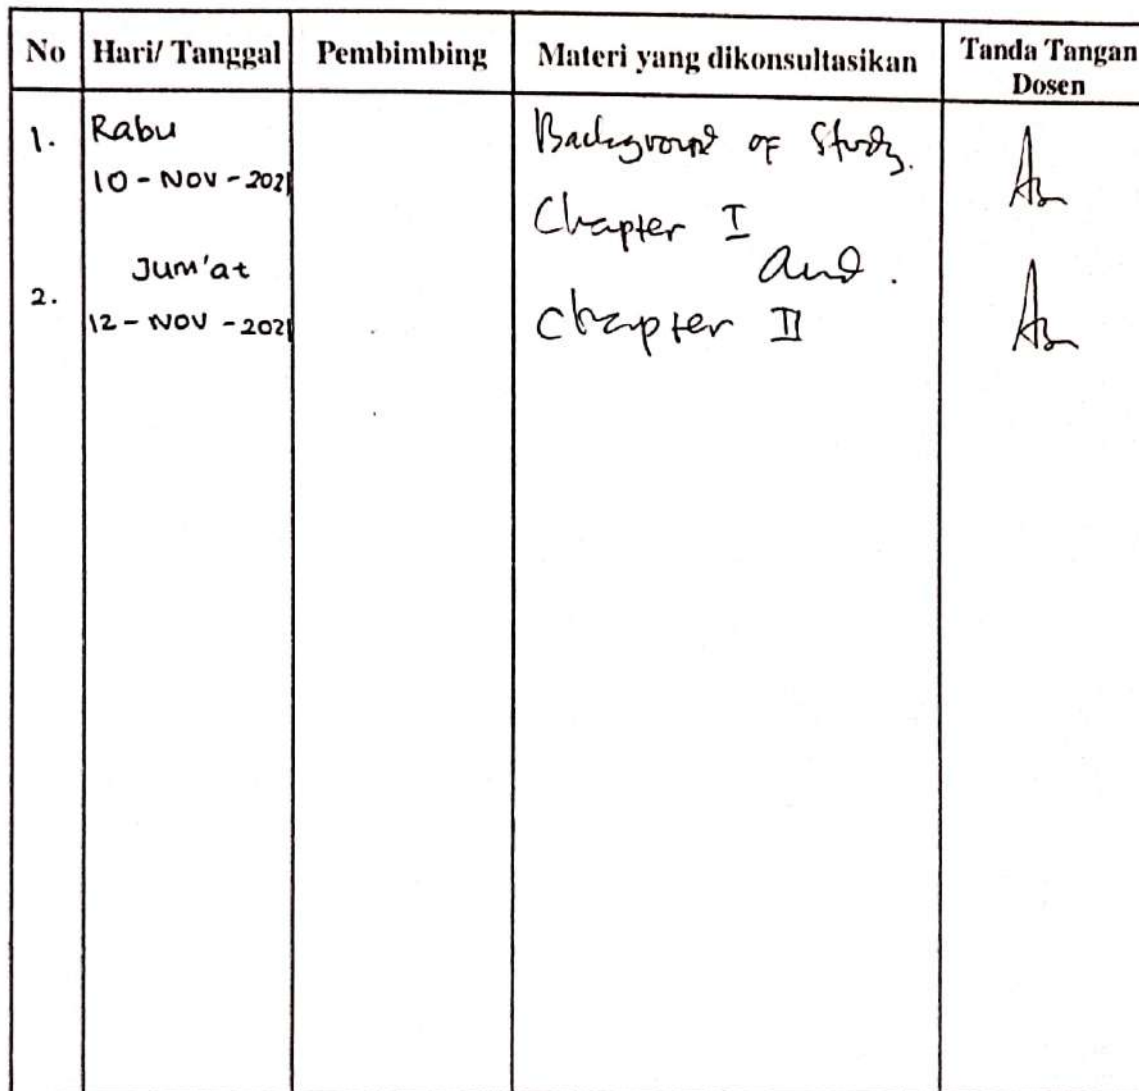 No Hari/ Tanggal Pembimbing Materi yang dikonsultasikan Tanda Tangan Dosen
1. Rabu Background of Study.
10 - NOV - 2021
Chapter I
and.
2. Jum'at
12 - NOV - 2021 Chapter II